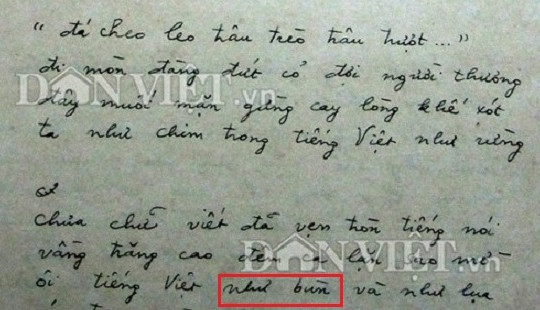 “đá cheo leo trâu trèo trâu trượt...”
đi mòn đàng đứt cỏ đợi người thương
đây muối mặn gừng cay lòng khế xót
ta như chim trong tiếng Việt như rừng
chưa chữ viết đã vẹn tròn tiếng nói
vầng trăng cao đêm cá lặn
ôi tiếng Việt như bùn và như lụa
DÂN VIỆT.vn
DÂN VIỆT.vn